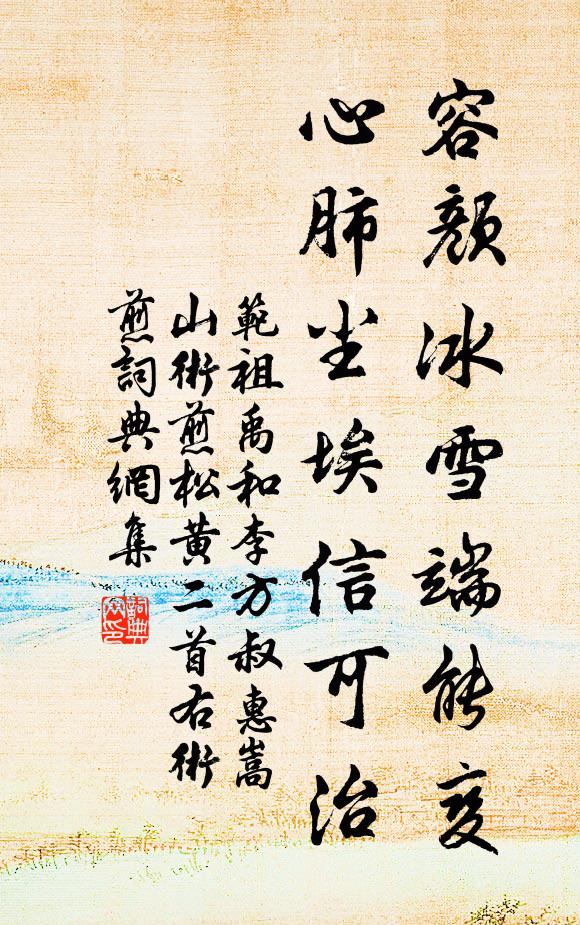 容顏冰雪端能変
心肺尘埃信可治
範祖禹和李方叔惠嵩
山術煎松黄二首右術
煎詞典網集
詞典網印